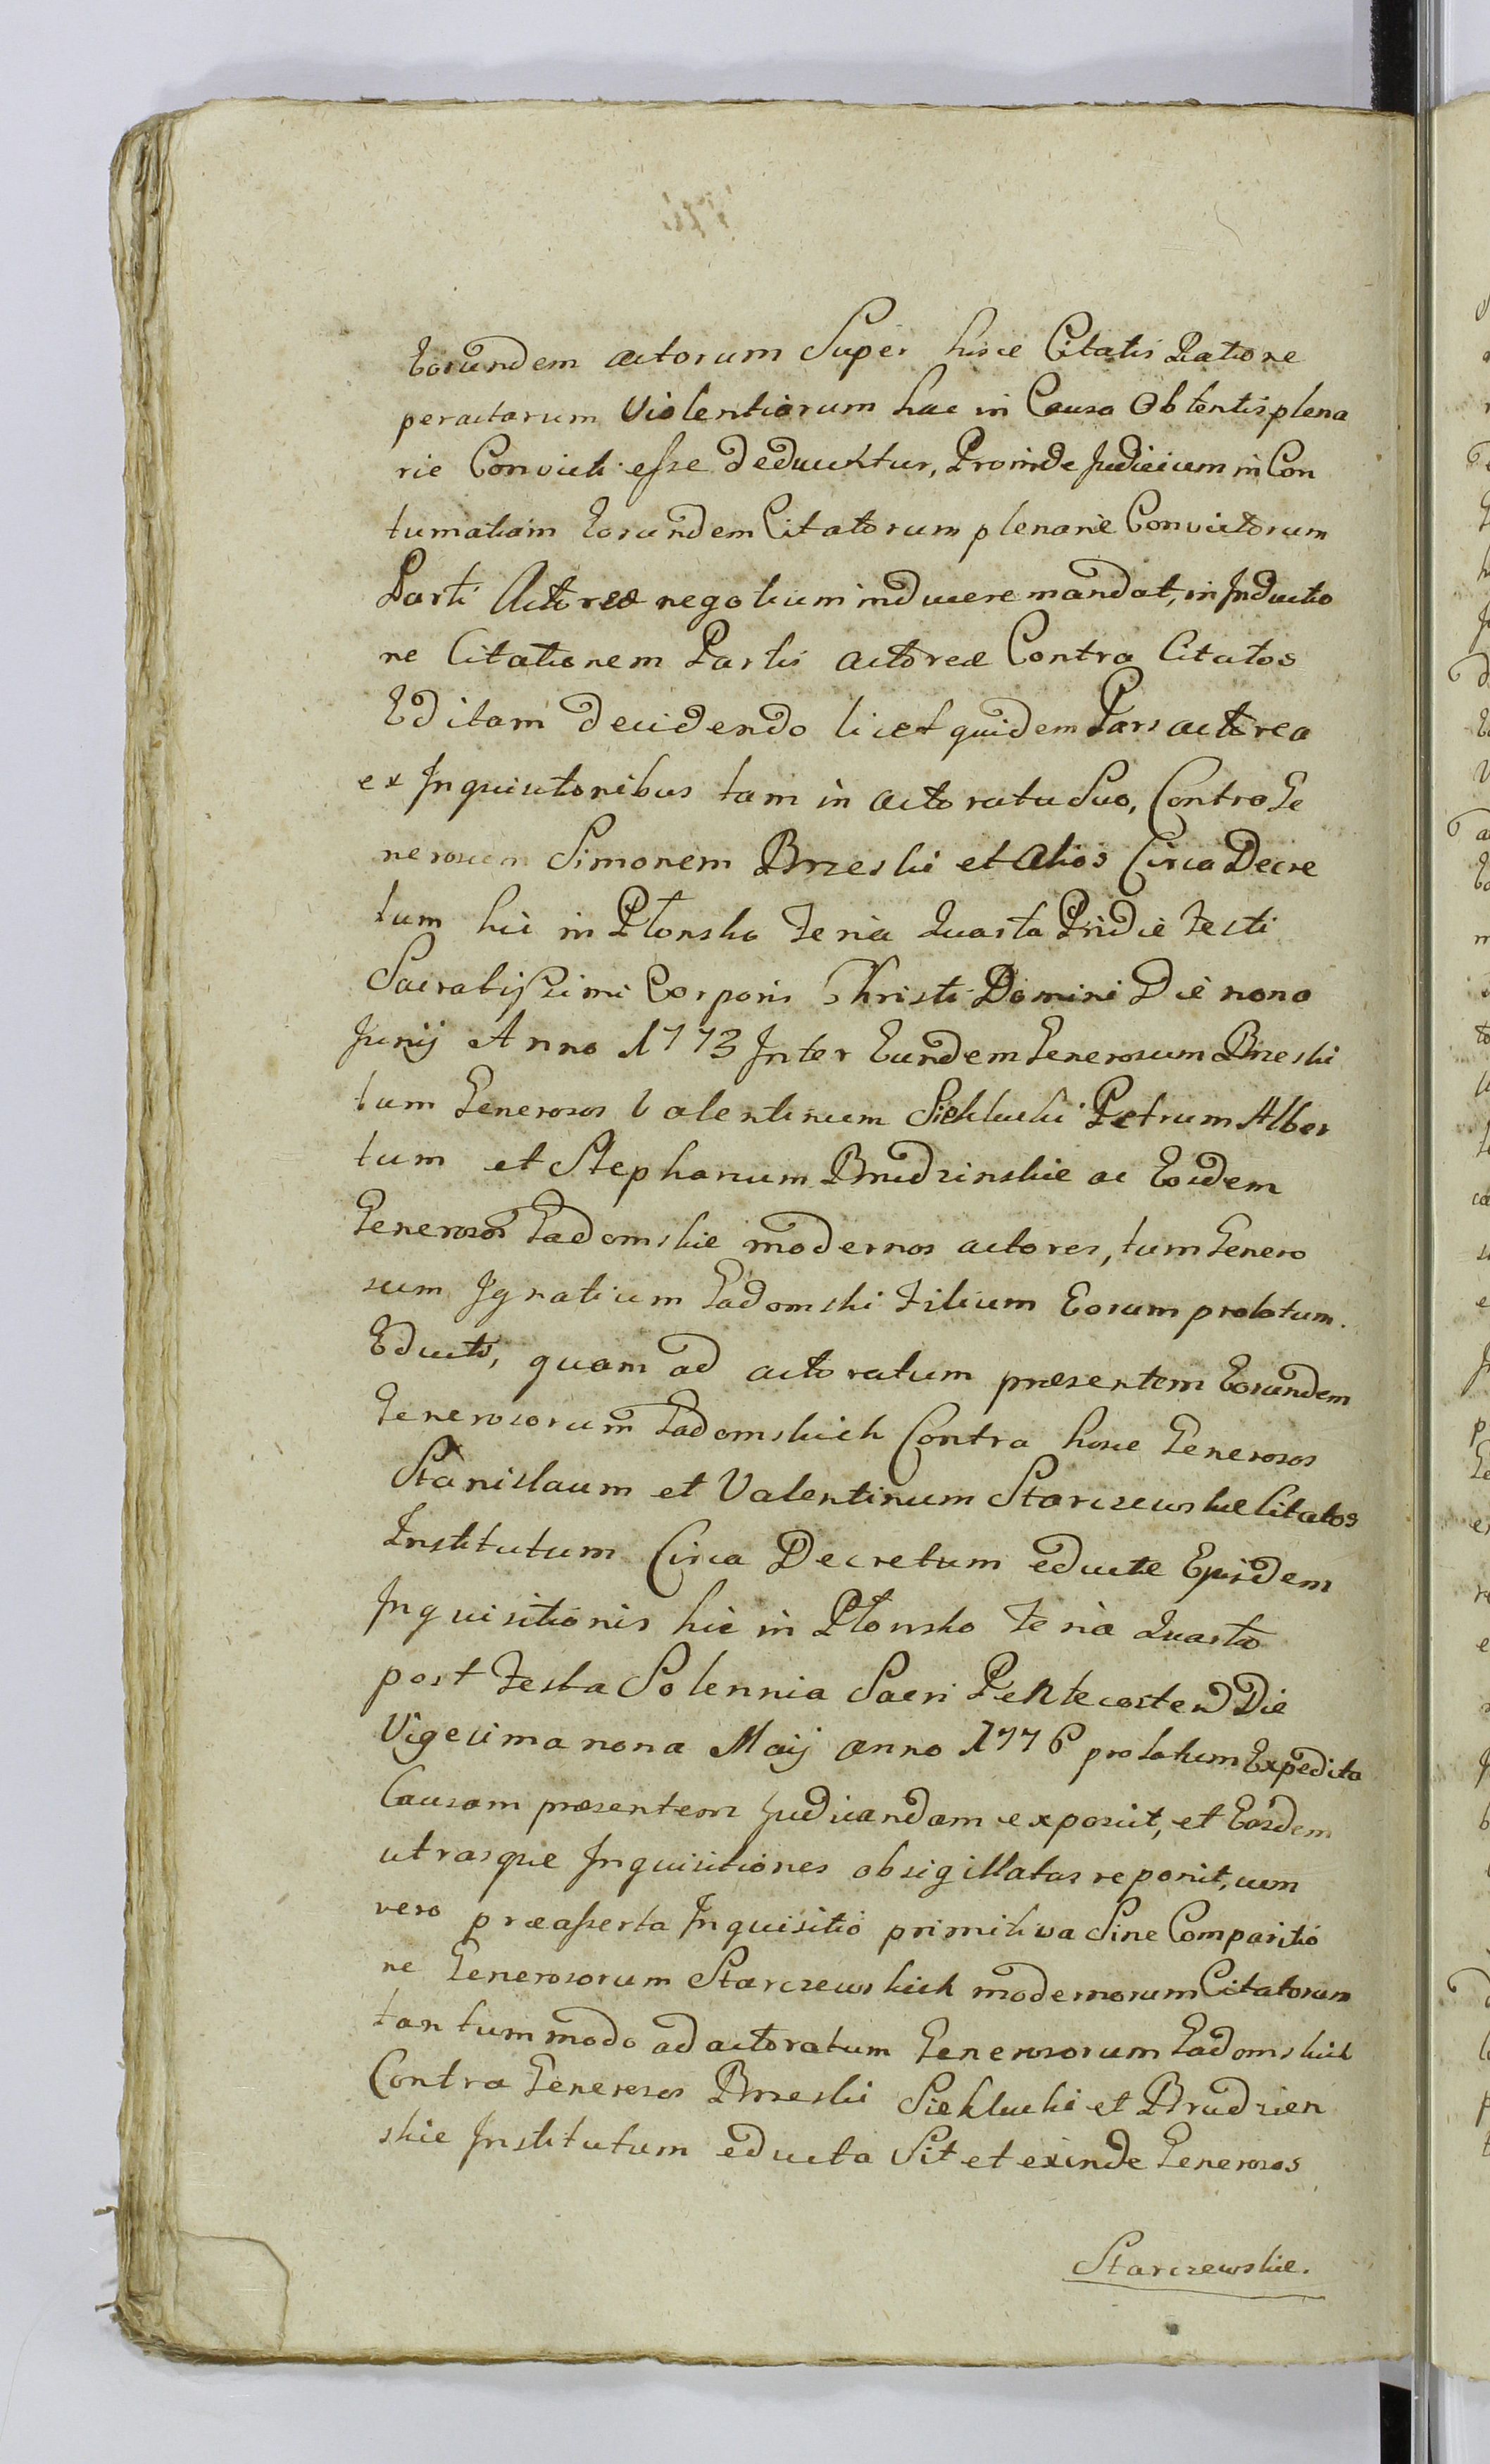 Eorundem actorum Super hisce Citatis Ratione
peractarum Violentiarum hac in Causa Obtentis plena
rie Convicti esse deducuntur, Proinde Judicium in Con
tumatiam Eorundem Citatorum plenarie Convictorum
Parti Actoreæ negotium inducere mandat, in Inductio
ne Citationem Partis actoreæ Contra Citatos
Editam decidendo licet quidem Pars actorea
ex Inquisitionibus tam in actoratu Suo, Contra Ge
nerosum Simonem Brzeski et Alios Circa Decre
tum hic in Płonsko Feria Quarta Pridie Festi
Sacratissimi Corporis Christi Domini Die nona
Junij Anno 1773 Inter Eundem Generosum Brzeski
tum Generosos Valentinum Siekłucki Petrum Alber
tum et Stephanum Brudzinskie ac Eosdem
Generosos Gadomskie modernos actores, tum Genero
sum Ignatium Gadomski Filium Eorum prolatum.
Eductis, quam ad actoratum præsentem Eorundem
Generosorum Gadomskich Contra hosce Generosos
Stanislaum et Valentinum Starczewskie Citatos
Institutum Circa Decretum eductæ Ejusdem
Inquisitionis hic in Płonsko Feria Quarta
post Festa Solennia Sacri Pentecostes Die
Vigesima nona Maij anno 1776 prolatum Expedita
Causam præsentem Judicandam exposuit, et Easdem
utrasque Inquisitiones obsigillatas reponit, cum
vero præasserta Inquisitio primitiva Sine Comparitio
ne Generosorum Starczewskich modernorum Citatorum
tantummodo ad actoratum Generosorum Gadomskich
Contra Generosos Brzeski Siekłucki et Brudzien
skie Institutum educta Sit et exinde Generosos
Starczewskie.